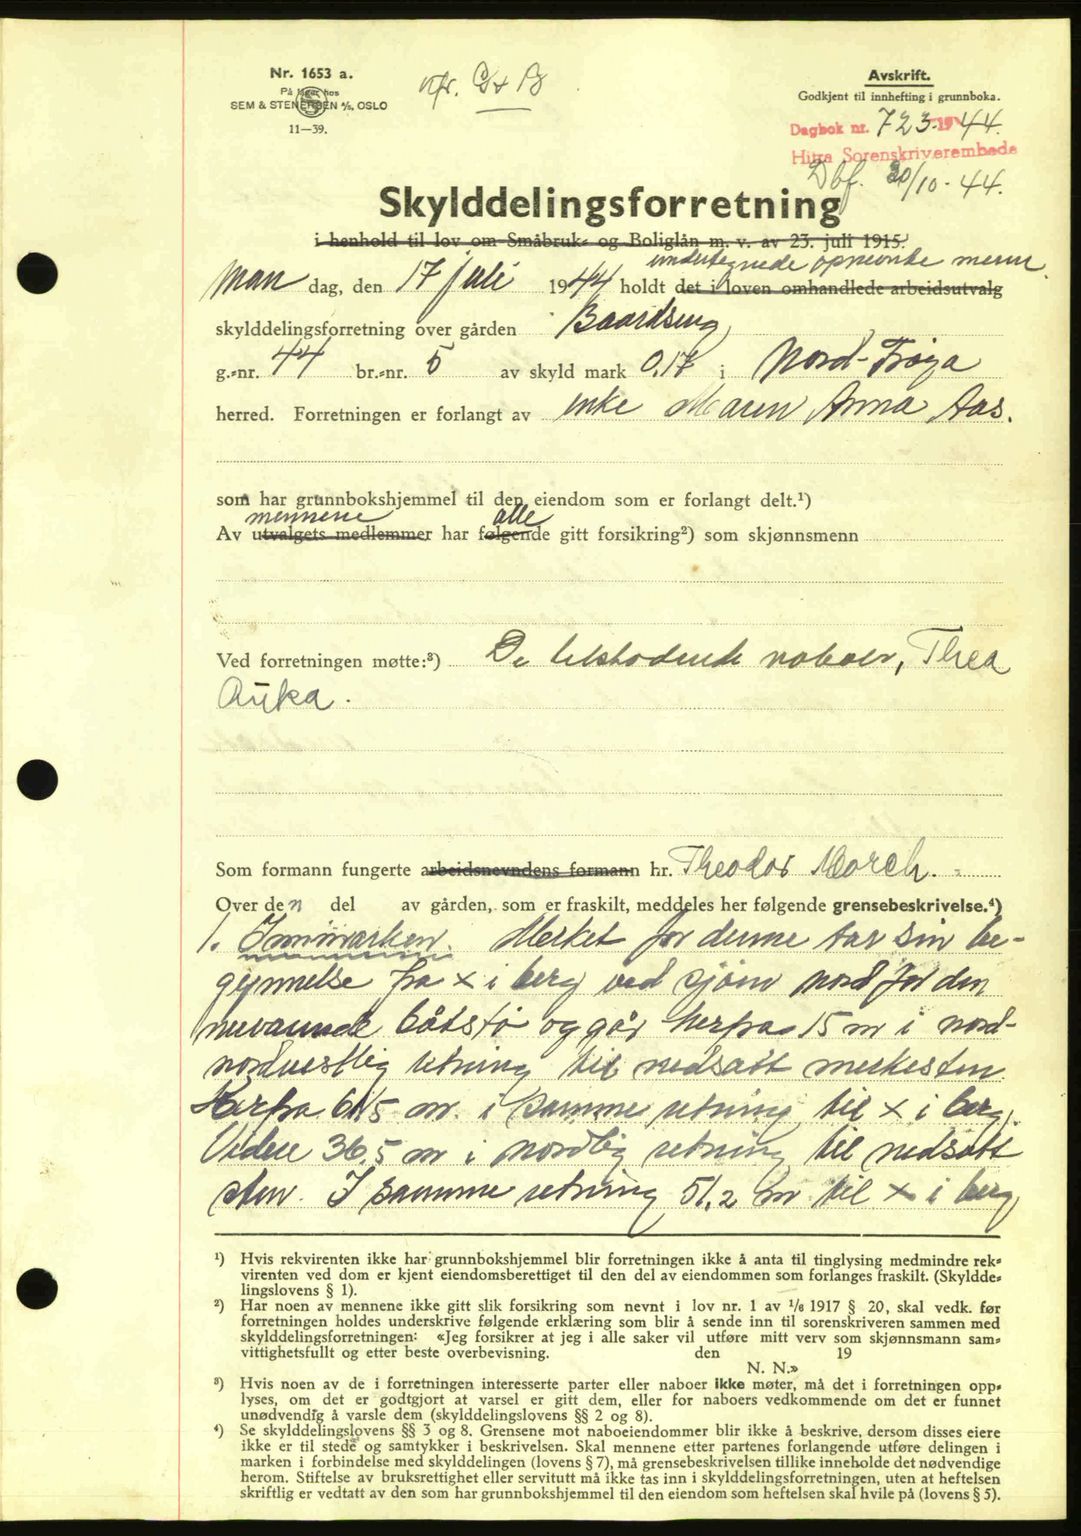 Nr. 1653 a.
På lager hos
SEM & STENERSEN A/S, OSLO
11—39.
Avskrift.
Godkjent til innhefting i grunnboka.
Dagbok nr. 723. 1944.
Hitra Sorenskriverembede
Dbf. 20/10-44.
Skylddelingsforretning
i henhold til lov om Småbruk- og Boliglån m. v. av 23. juli 1915.
undertegnede opnevnte menn
Man dag, den 17 juli 1944 holdt det i loven omhandlede arbeidsutvalg
skylddelingsforretning over gården Baardseng
g.-nr. 44 br.-nr. 5 av skyld mark 0,17 i Nord-Frøya
herred. Forretningen er forlangt av enke Maren Anna Aas.
som har grunnbokshjemmel til den eiendom som er forlangt delt.¹)
mennene alle
Av utvalgets medlemmer har følgende gitt forsikring²) som skjønnsmenn
Ved forretningen møtte:³) De tilstødende naboer, Thea
Auka.
Som formann fungerte arbeidsnevndens formann hr. Theodor Morch.
Over den del av gården, som er fraskilt, meddeles her følgende grensebeskrivelse.⁴)
1. Innmarken. Merket for denne tar sin be-
gynnelse fra x i berg ved sjøen nord for den
nuværende båtstø og går herfra 15 m i nord-
nordvestlig retning til nedsatt merkesten.
Herfra 61,5 m. i samme retning til x i berg.
Videre 36,5 m i nordlig retning til nedsatt
sten. I samme retning 51,2 m til x i berg
¹) Hvis rekvirenten ikke har grunnbokshjemmel blir forretningen ikke å anta til tinglysing medmindre rek-
virenten ved dom er kjent eiendomsberettiget til den del av eiendommen som forlanges fraskilt. (Skyldde-
lingslovens § 1).
²) Har noen av mennene ikke gitt slik forsikring som nevnt i lov nr. 1 av 1/6 1917 § 20, skal vedk. før
forretningen holdes underskrive følgende erklæring som blir å sende inn til sorenskriveren sammen med
skylddelingsforretningen: «Jeg forsikrer at jeg i alle saker vil utføre mitt verv som skjønnsmann sam-
vittighetsfullt og etter beste overbevisning. den 19
N. N.»
³) Hvis noen av de i forretningen interesserte parter eller naboer ikke møter, må det i forretningen opp-
lyses, om det er godtgjort at varsel er gitt dem, eller for naboers vedkommende om det er funnet
unødvendig å varsle dem (skylddelingslovens §§ 2 og 8).
⁴) Se skylddelingslovens §§ 3 og 8. Grensene mot naboeiendommer blir ikke å beskrive, dersom disses eiere
ikke er til stede og samtykker i beskrivelsen. Skal mennene etter partenes forlangende utføre delingen i
marken i forbindelse med skylddelingen (lovens § 7), må grensebeskrivelsen tillike inneholde det nødvendige
herom. Stiftelse av bruksrettighet eller servitutt må ikke tas inn i skylddelingsforretningen, uten at heftelsen
skriftlig er vedtatt av den som har grunnbokshjemmel til den eiendom som heftelsen skal hvile på (lovens § 5).